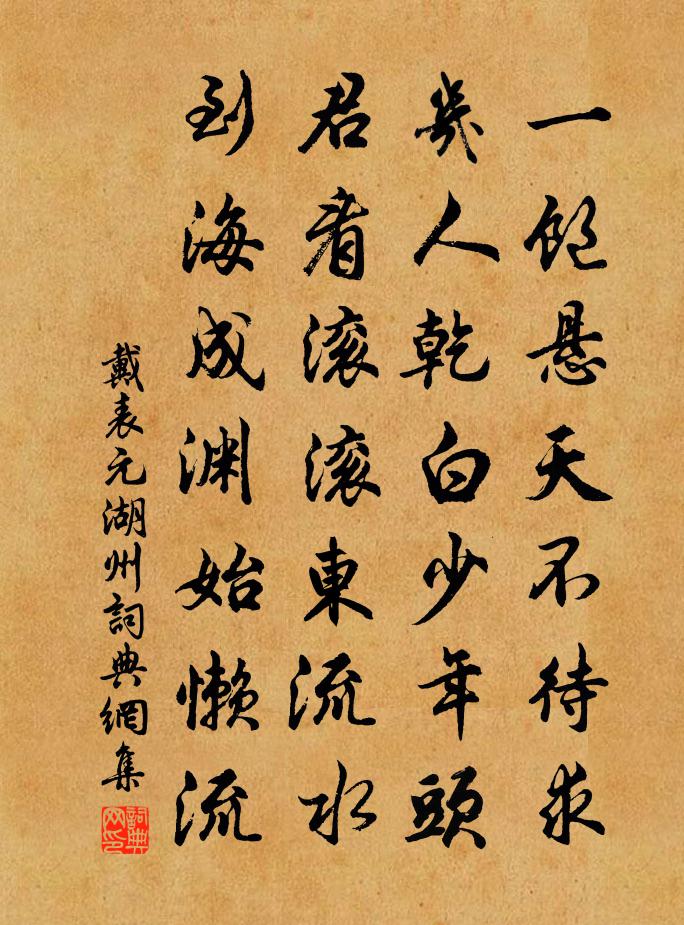 一飽懸天不待求
幾人乾白少年頭
君看滚滚東流水
到海成渊始懒流
戴表元湖州詞典網集
詞典網印